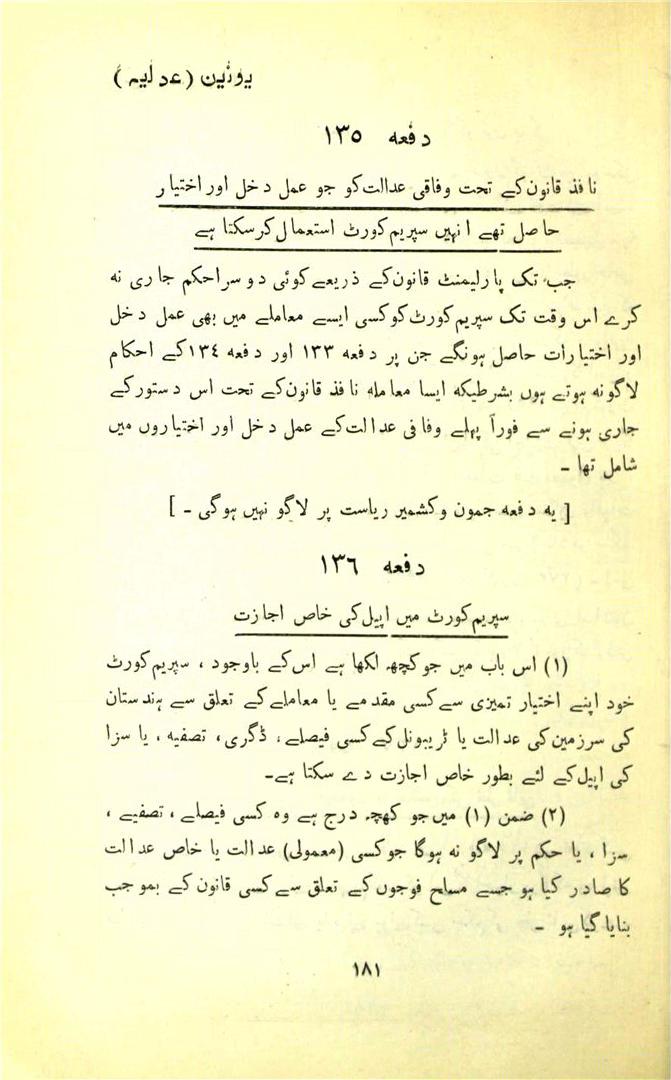 یونین (عدلیہ)
دفعه ۱۳۵
نافذ قانون کے تحت وفاقی عدالت کو جو عمل دخل اور اختیار
حاصل تھے انہیں سپریم کورٹ استعمال کرسکتا ہے
جب تک پارلیمنٹ قانون کے ذریعے کوئی دوسرا حکم جاری نه
کرے اس وقت تک سپریم کورٹ کو کسی ایسے معاملے میں بھی عمل دخل
اور اختیارات حاصل ہونگے جن پر دفعه ۱۳۳ اور دفعه ۱۳٤ کے احکام
لاگو نه ہوتے ہوں بشرطیکه ایسا معامله نافذ قانون کے تحت اس دستور کے
جاری ہونے سے فوراً پہلے وفاقی عدالت کے عمل دخل اور اختیاروں میں
شامل تھا ۔
[یه دفعه جموں وکشمیر ریاست پر لاگو نہیں ہوگی ۔ ]
دفعه ۱۳٦
سپریم کورٹ میں اپیل کی خاص اجازت
(۱) اس باب میں جو کچھ لکھا ہے اس کے باوجود ، سپریم کورٹ
خود اپنے اختیار تمیزی سے کسی مقدمے یا معاملے کے تعلق سے ہندستان
کی سرزمین کی عدالت یا ٹریبونل کے کسی فیصلے ، ڈگری ، تصفیه ، یا سزا
کی اپیل کے لئے بطور خاص اجازت دے سکتا ہے۔
(۲) ضمن (۱) میں جو کھچھ درج ہے وہ کسی فیصلے ، تصفیے ،
سزا ، یا حکم پر لاگو نه ہوگا جو کسی (معمولی) عدالت یا خاص عدالت
کا صادر کیا ہو جسے مسلح فوجوں کے تعلق سے کسی قانون کے بموجب
بنایا گیا ہو ۔
۱۸۱